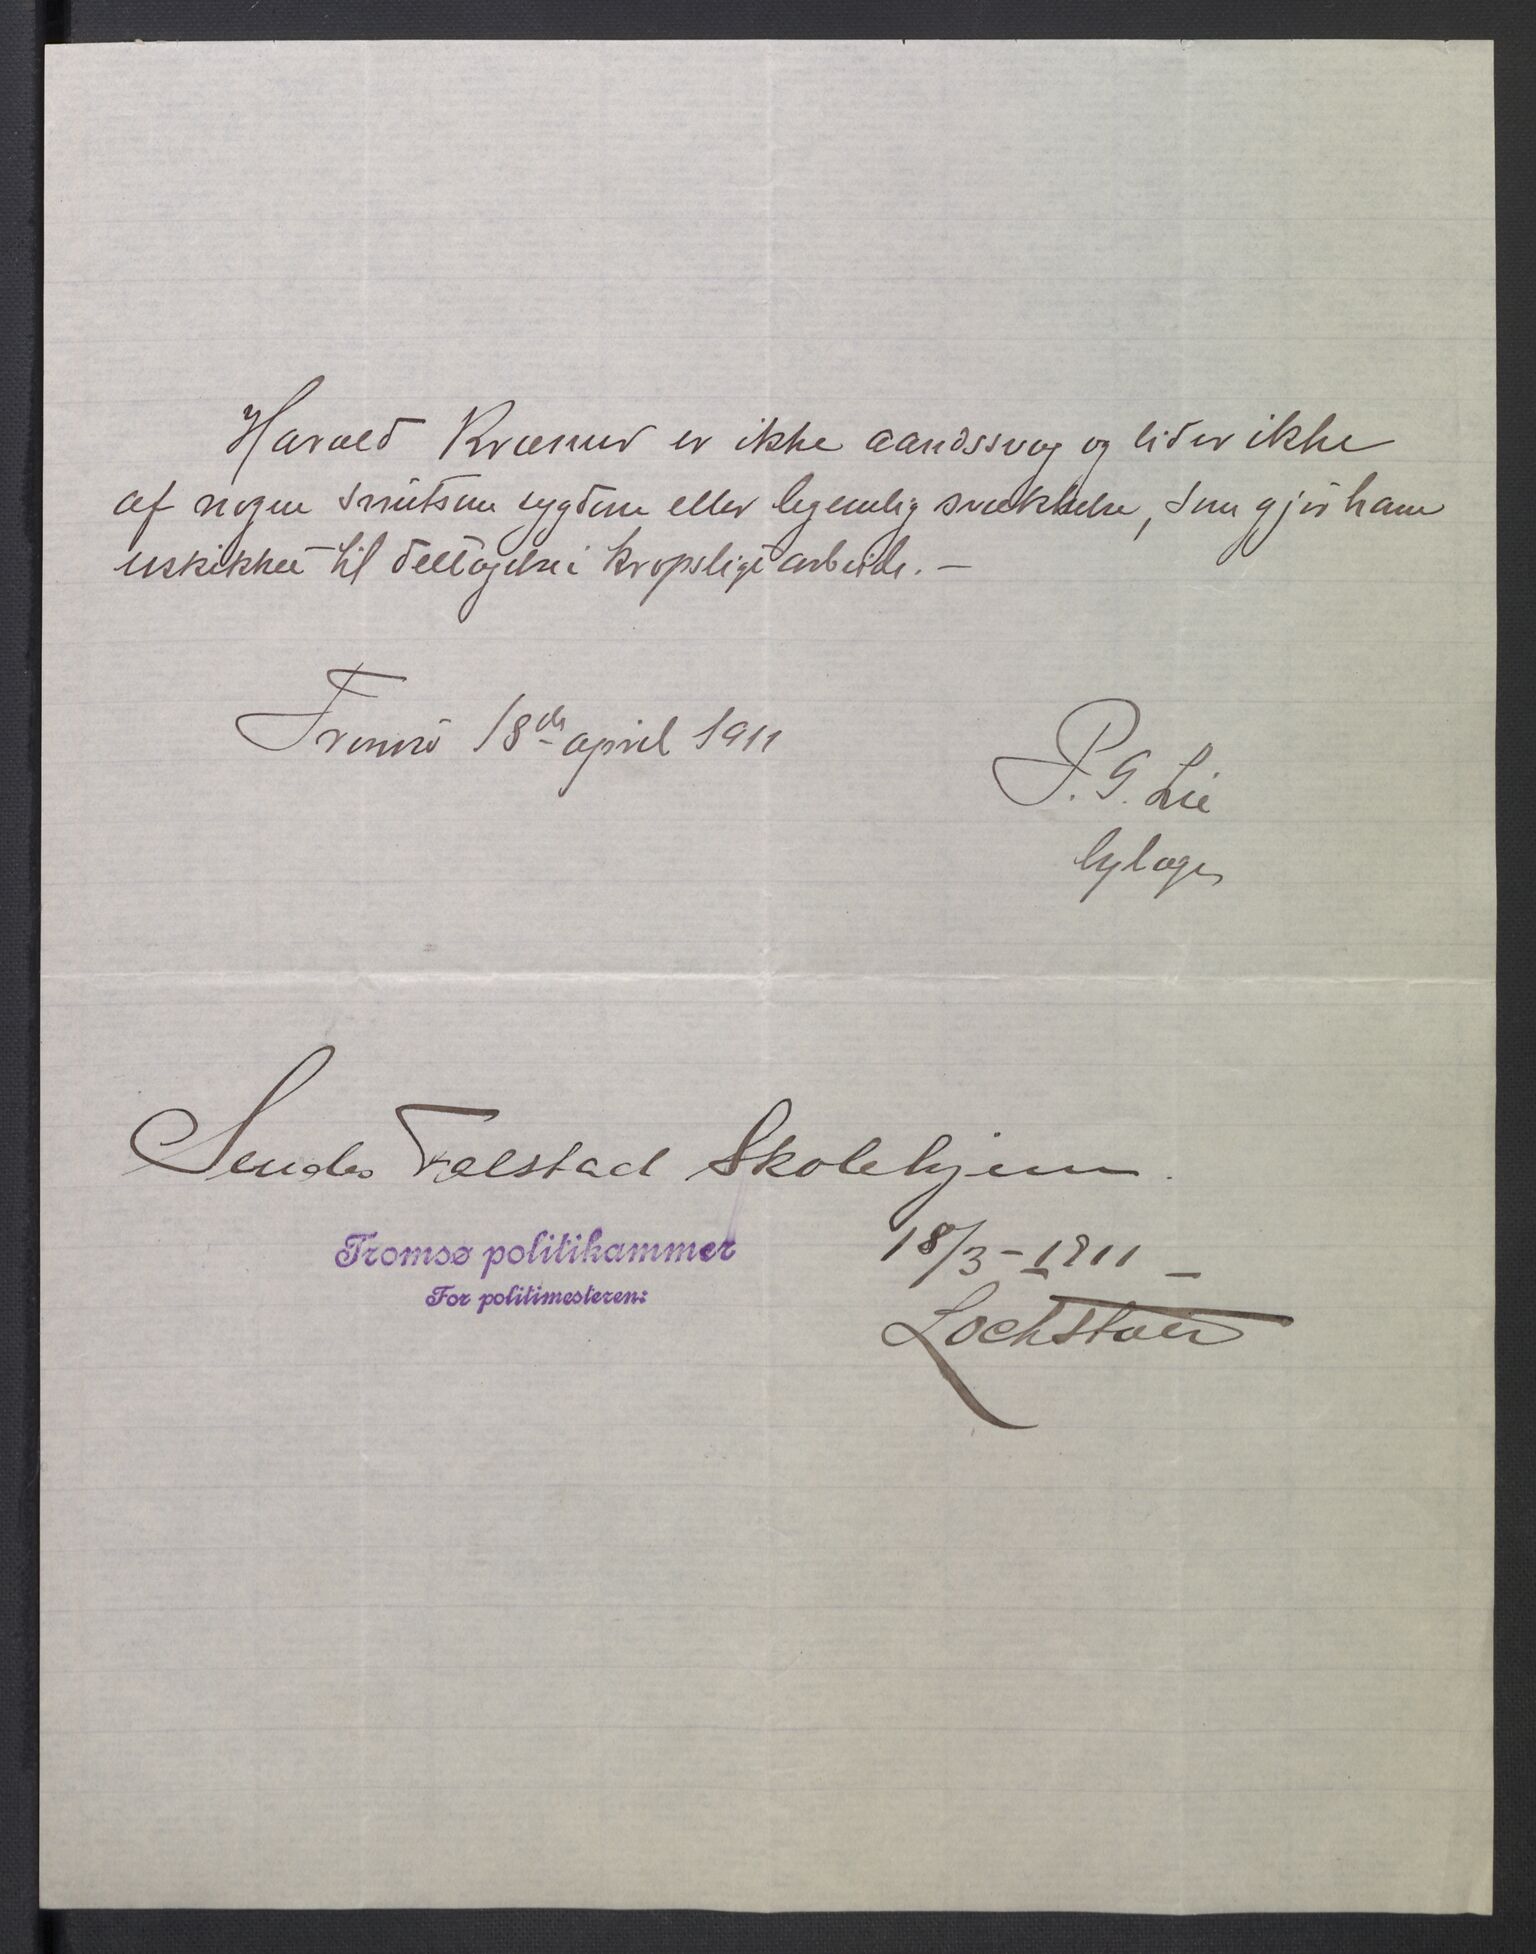 Harald Kræmer er ikke aandssvag og lider ikke
af nogen smitsom sygdom eller legemlig svækkelse, som gjør ham
uskikket til deltagelse i kropsligt arbeide. —
Tromsö 18de april 1911
P. G. Lie
bylæge
Sendes Falstad Skolehjem.
Tromsø politikammer
18/3 - 1911 —
For politimesteren: